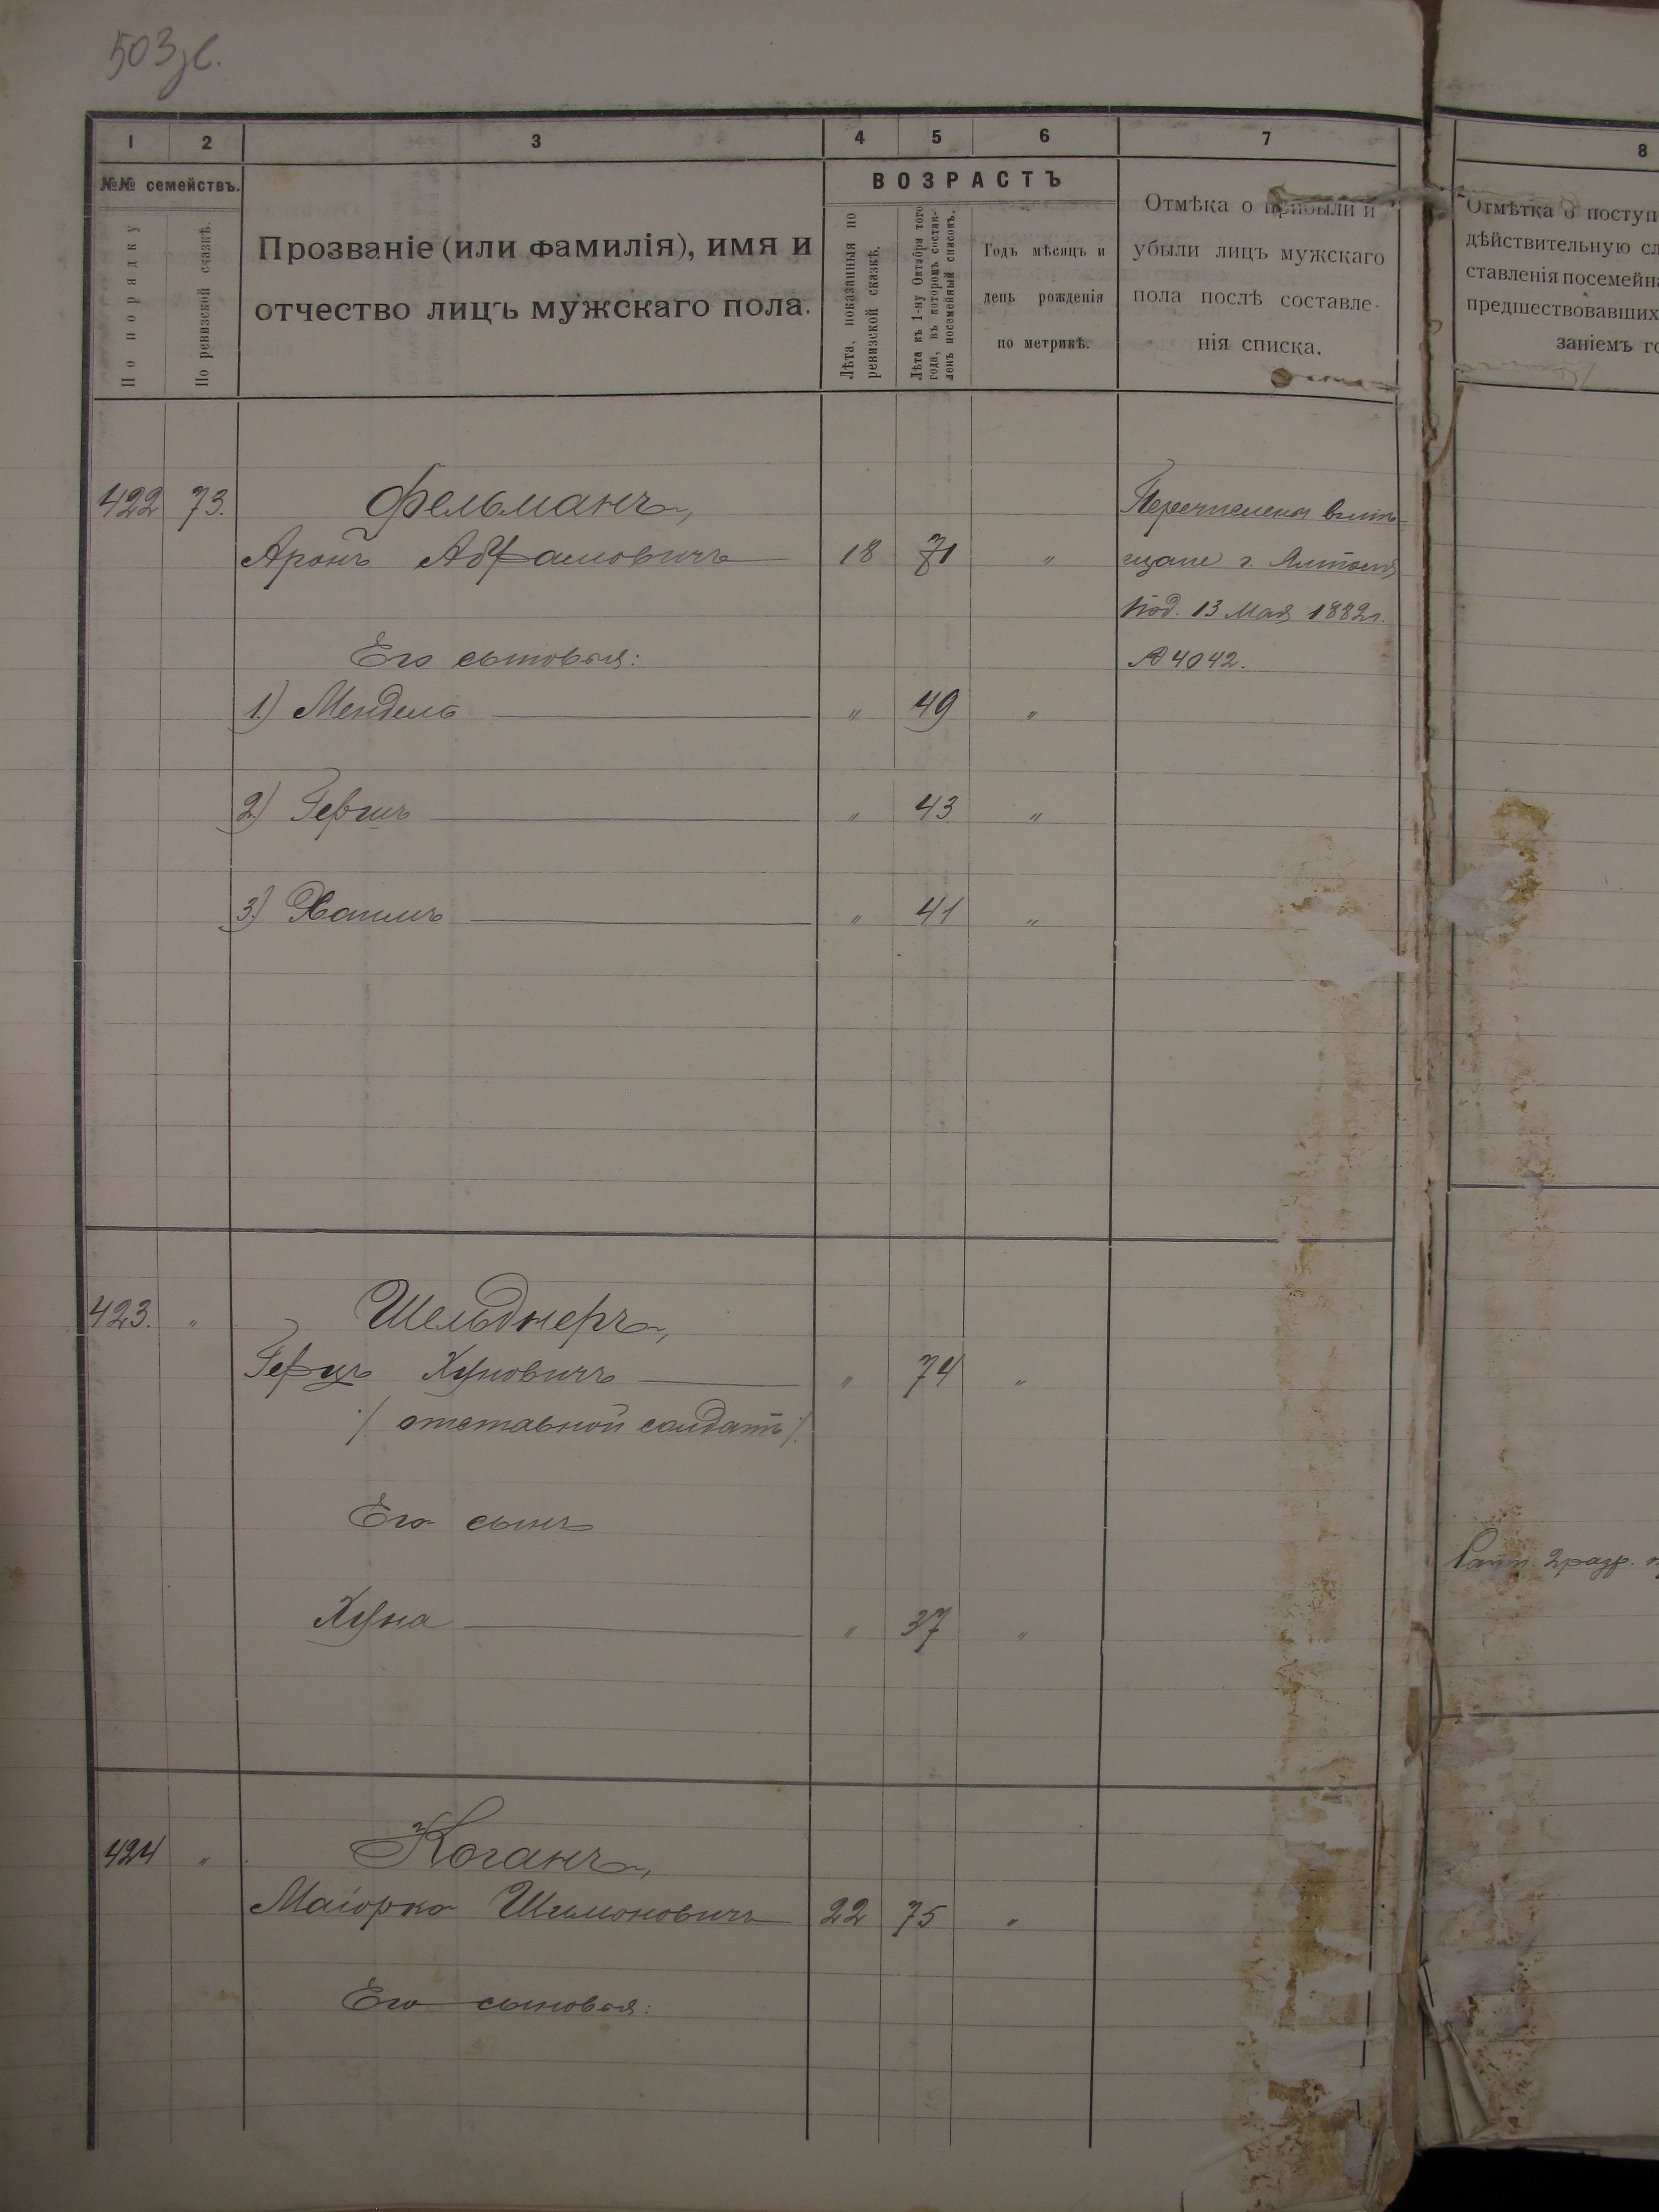 503 зв.
1 2 3 4 5 6 7 8
№№ семействъ.
По порядку
По ревизской сказкѣ.
Прозваніе (или фамилія), имя и
отчество лицъ мужскаго пола.
ВОЗРАСТЪ
Лѣта, показанныя по
ревизской сказкѣ.
Лѣта къ 1-му Октября того
года, въ которомъ состав-
ленъ посемейный списокъ.
Годъ мѣсяцъ и
день рожденія
по метрикѣ.
Отмѣка о прибыли и
убыли лицъ мужскаго
пола послѣ составле-
нія списка.
Отмѣтка о поступ
дѣйствительную сл
ставленія посемейна
предшествовавшихъ
заніемъ го
422 73. Фельманъ,
Аронъ Абрамовичъ 18 71 "
Перечислены
щане г.
13 Мая 1882г.
№ 4042.
Его сыновья:
1.) Мендель " 49 "
2.) Гершъ " 43 "
3.) Хаимъ " 41 "
423. " Шельднеръ,
Герцъ Хуновичъ " 74 "
/отставной солдатъ/.
Его сынъ
Хуна " 37 "
2 разр.
424 " Коганъ,
Маіорко Шимоновичъ 22 75 "
Его сыновья: